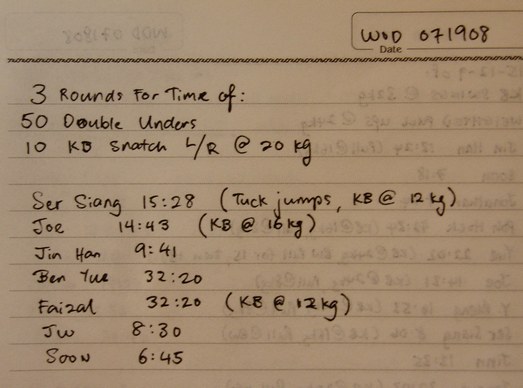 WOD 071908
Date
3 Rounds For Time of:
50 Double Unders
10 KB Snatch L/R @ 20 kg
Ser Siang 15:28 (Tuck jumps, KB @ 12 kg)
Joe 14:43 (KB @ 16 kg)
Jin Han 9:41
Ben Yue 32:20
Faizal 32:20 (KB @ 12 kg)
JW 8:30
Soon 6:45